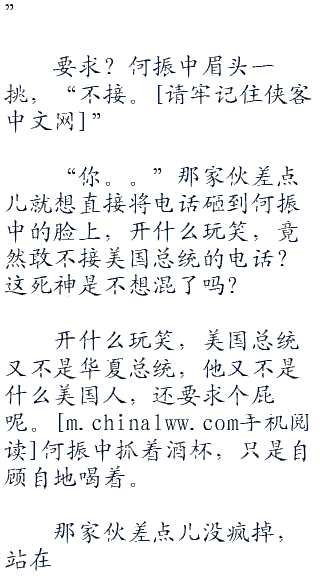 ”
要求？何振中眉头一
挑，“不接。[请牢记住侠客
中文网]”
“你。。”那家伙差点
儿就想直接将电话砸到何振
中的脸上，开什么玩笑，竟
然敢不接美国总统的电话？
这死神是不想混了吗？
开什么玩笑，美国总统
又不是华夏总统，他又不是
什么美国人，还要求个屁
呢。[m.china1ww.com手机阅
读]何振中抓着酒杯，只是自
顾自地喝着。
那家伙差点儿没疯掉，
站在